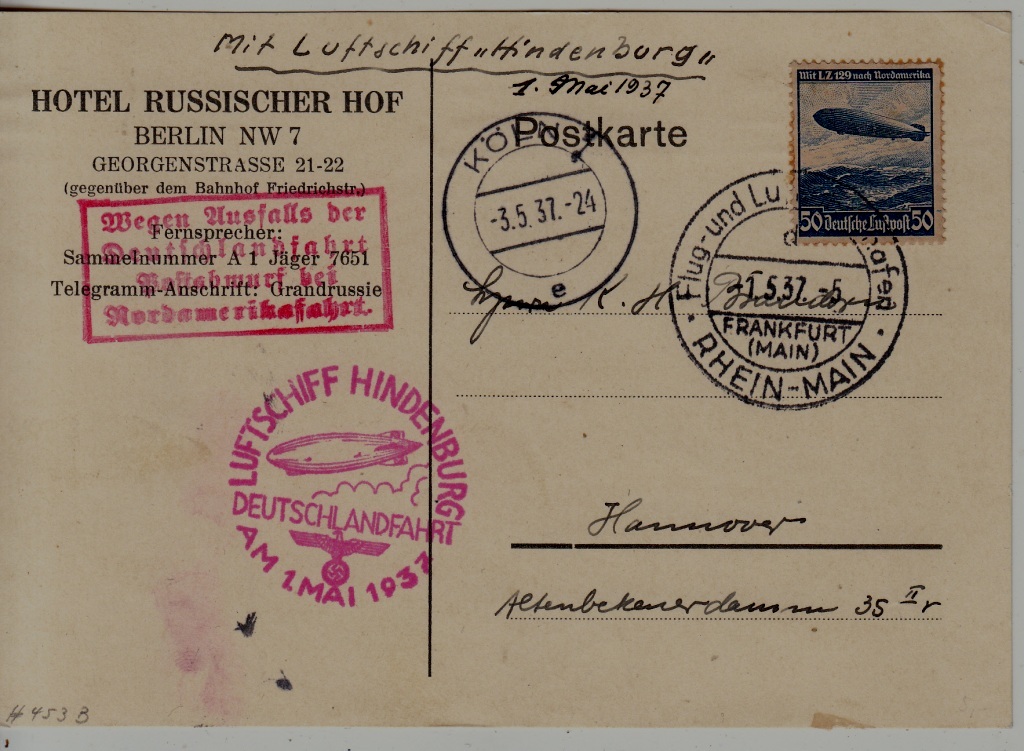 Mit Luftschiff „Hindenburg"
1. Mai 1937
HOTEL RUSSISCHER HOF
BERLIN NW 7
GEORGENSTRASSE 21-22
(gegenüber dem Bahnhof Friedrichstr.)
Fernsprecher:
Sammelnummer A 1 Jäger 7651
Telegramm-Anschrift: Grandrussie
Wegen Ausfalls der
Deutschlandfahrt
Postabwurf bei
Nordamerikafahrt.
Postkarte
KÖLN
-3.5.37.-24
e
Mit LZ 129 nach Nordamerika
50 Deutsche Luftpost 50
Flug- und Lu
afen
d
-1.5.37.-5
FRANKFURT
(MAIN)
RHEIN-MAIN
K. H.
LUFTSCHIFF HINDENBURG
DEUTSCHLANDFAHRT
AM 1. MAI 1937
Hannover
Altenbekenerdamm 35 II r
# 453 B